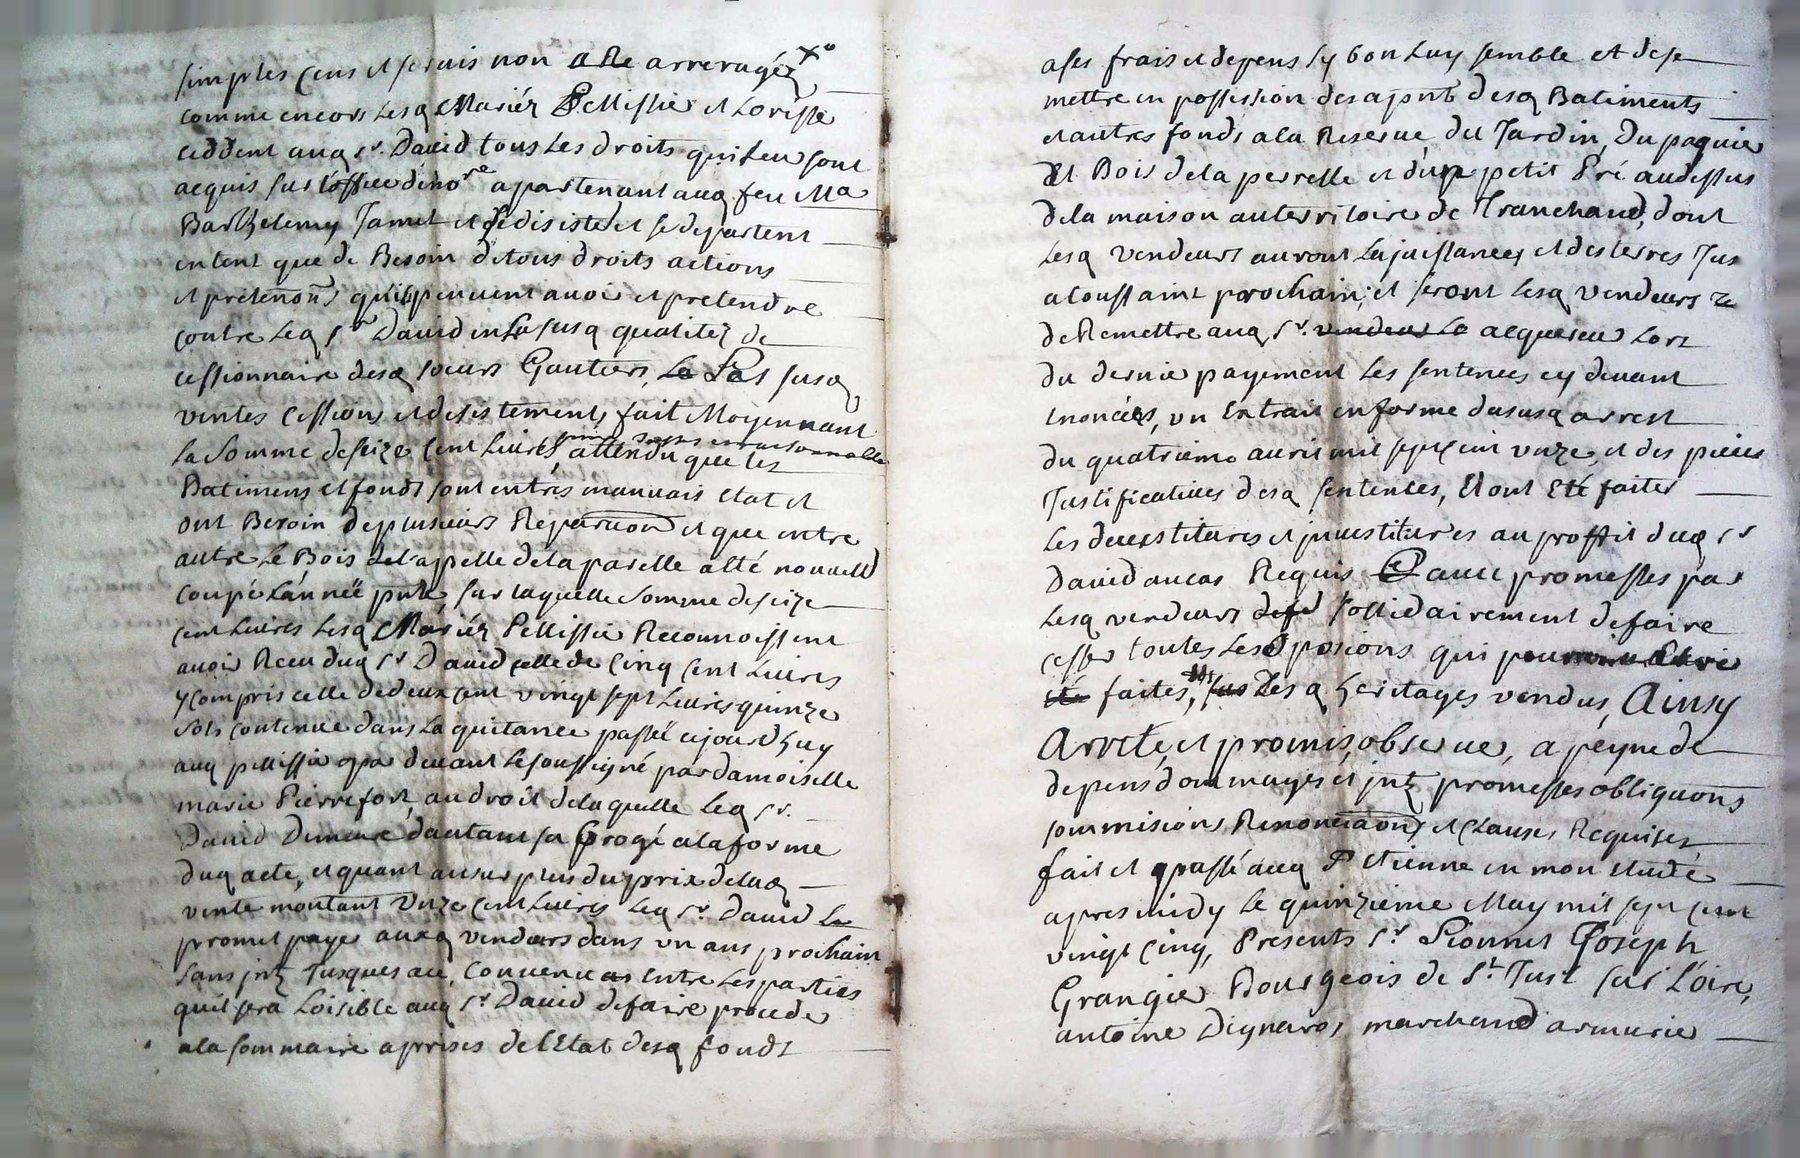 simples cens et servis non arreragés
comme encors lesq Mariéz Pellissier et Lorisse
ceddent auq sr. David tous les droits qui leur sont
acquis sur l'office de nore apartenant auq feu Me
Barthelemy Jamet et se disiste et se departent
entent que de Besoin de tous droits actions
et pretenons qu'ils peuvent avoir et pretendre
contre leq sr David en sa susq qualitéz de
cessionnaire desq sœurs Gautiers, Les susq
ventes cessions et desistements fait Moyennant
La Somme de seize cent Livres attendu que les
Batimens et fonds sont entrés mauvais etat et
ont Besoin de plusieurs Reparaon et que entre
autre le Bois de la parelle a été nouvell
coupé L'année pnte, sur laquelle somme de seize
cent Livres lesq Mariéz Pellissier Reconnoissent
avoir Receu duq sr David celle de cinq cent Livres
y compris celle de deux cent vingt sept Livres quinze
sols contenue dans la quitance passée cejourd'huy
auq pellissier par devant le soussigné par damoiselle
marie Pierrefort, au droit de laquelle leq sr.
David Demeure d'autant subrogé a la forme
duq acte, et quant au surplus du prix de laq
vente montant unze cent Livres leq sr. David
promet payer auxq vendeurs dans un ans prochain
sans jntz jusques a ce, convenu entre les parties
qu'il sera Loisible auq sr David de faire proceder
a la sommaire aprises de l'Etat desq fonds
a ses frais et depens sy bon Luy semble et de se
mettre en possession des apnt desq Batiments
et autres fonds a la Reserve du Jardin, Du paquier
et Bois de la perrelle et d'un petit Pré au dessus
de la maison au territoire de Tranchard, dont
Lesq vendeurs auront la juissances et des terres Jus
a toussaint prochain, et seront lesq vendeurs
de Remettre auq sr. acquereur Lors
du dernier payement les sentences cy devant
enoncées, un Extrait en forme du susq arrest
du quatrieme avril mil sept cent unze, et des pieces
Justificatives desq sentences, Et ont Eté faites
Les devestitures et jnvestitures au proffit duq sr
David au cas Requis avec promesses par
Lesq vendeurs sollidairement de faire
cesser toutes les oposions qui
faites, Lesq heritages vendus, Ainsy
Arreté, et promis, observer, a peyne de
depens dommages et jntz promesses obligaons
sommisions Renonciaons et Clauses Requises
fait et passé auq St Etienne en mon etude
apres midy le quinzieme May mil sept cent
vingt cinq, Presents sr Pionnet Joseph
Grangier Bourgeois de St. Just sur Loire,
antoine Dignaros marchand armurier